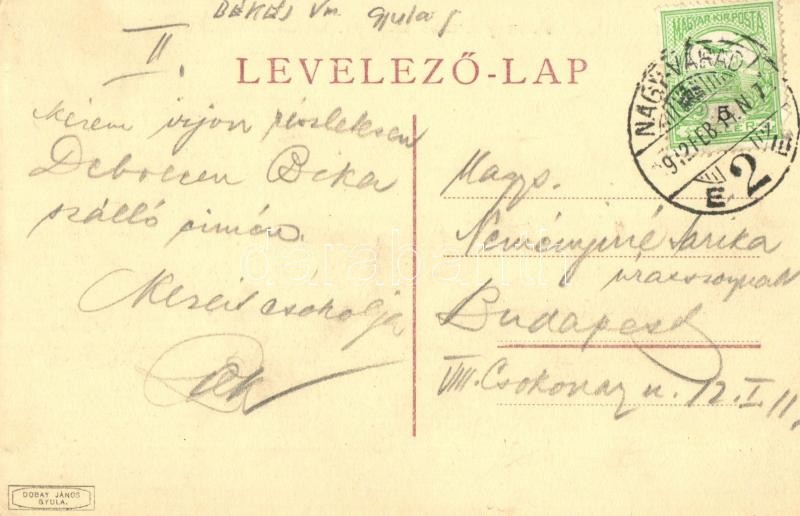 BÉKÉS Vm. Gyula
II.
LEVELEZŐ-LAP
MAGYAR KIR. POSTA
NAGYVÁRAD
912 FEB.
E 2
Kérem írjon részletesen
Debrecen Bika
szálló címén.
Kezeit csókolja
Nagys.
Neményiné Sarika
úrasszonynak
Budapest
VIII. Csokonay u. 12. I. 11.
DOBAY JÁNOS
GYULA.
darabanth